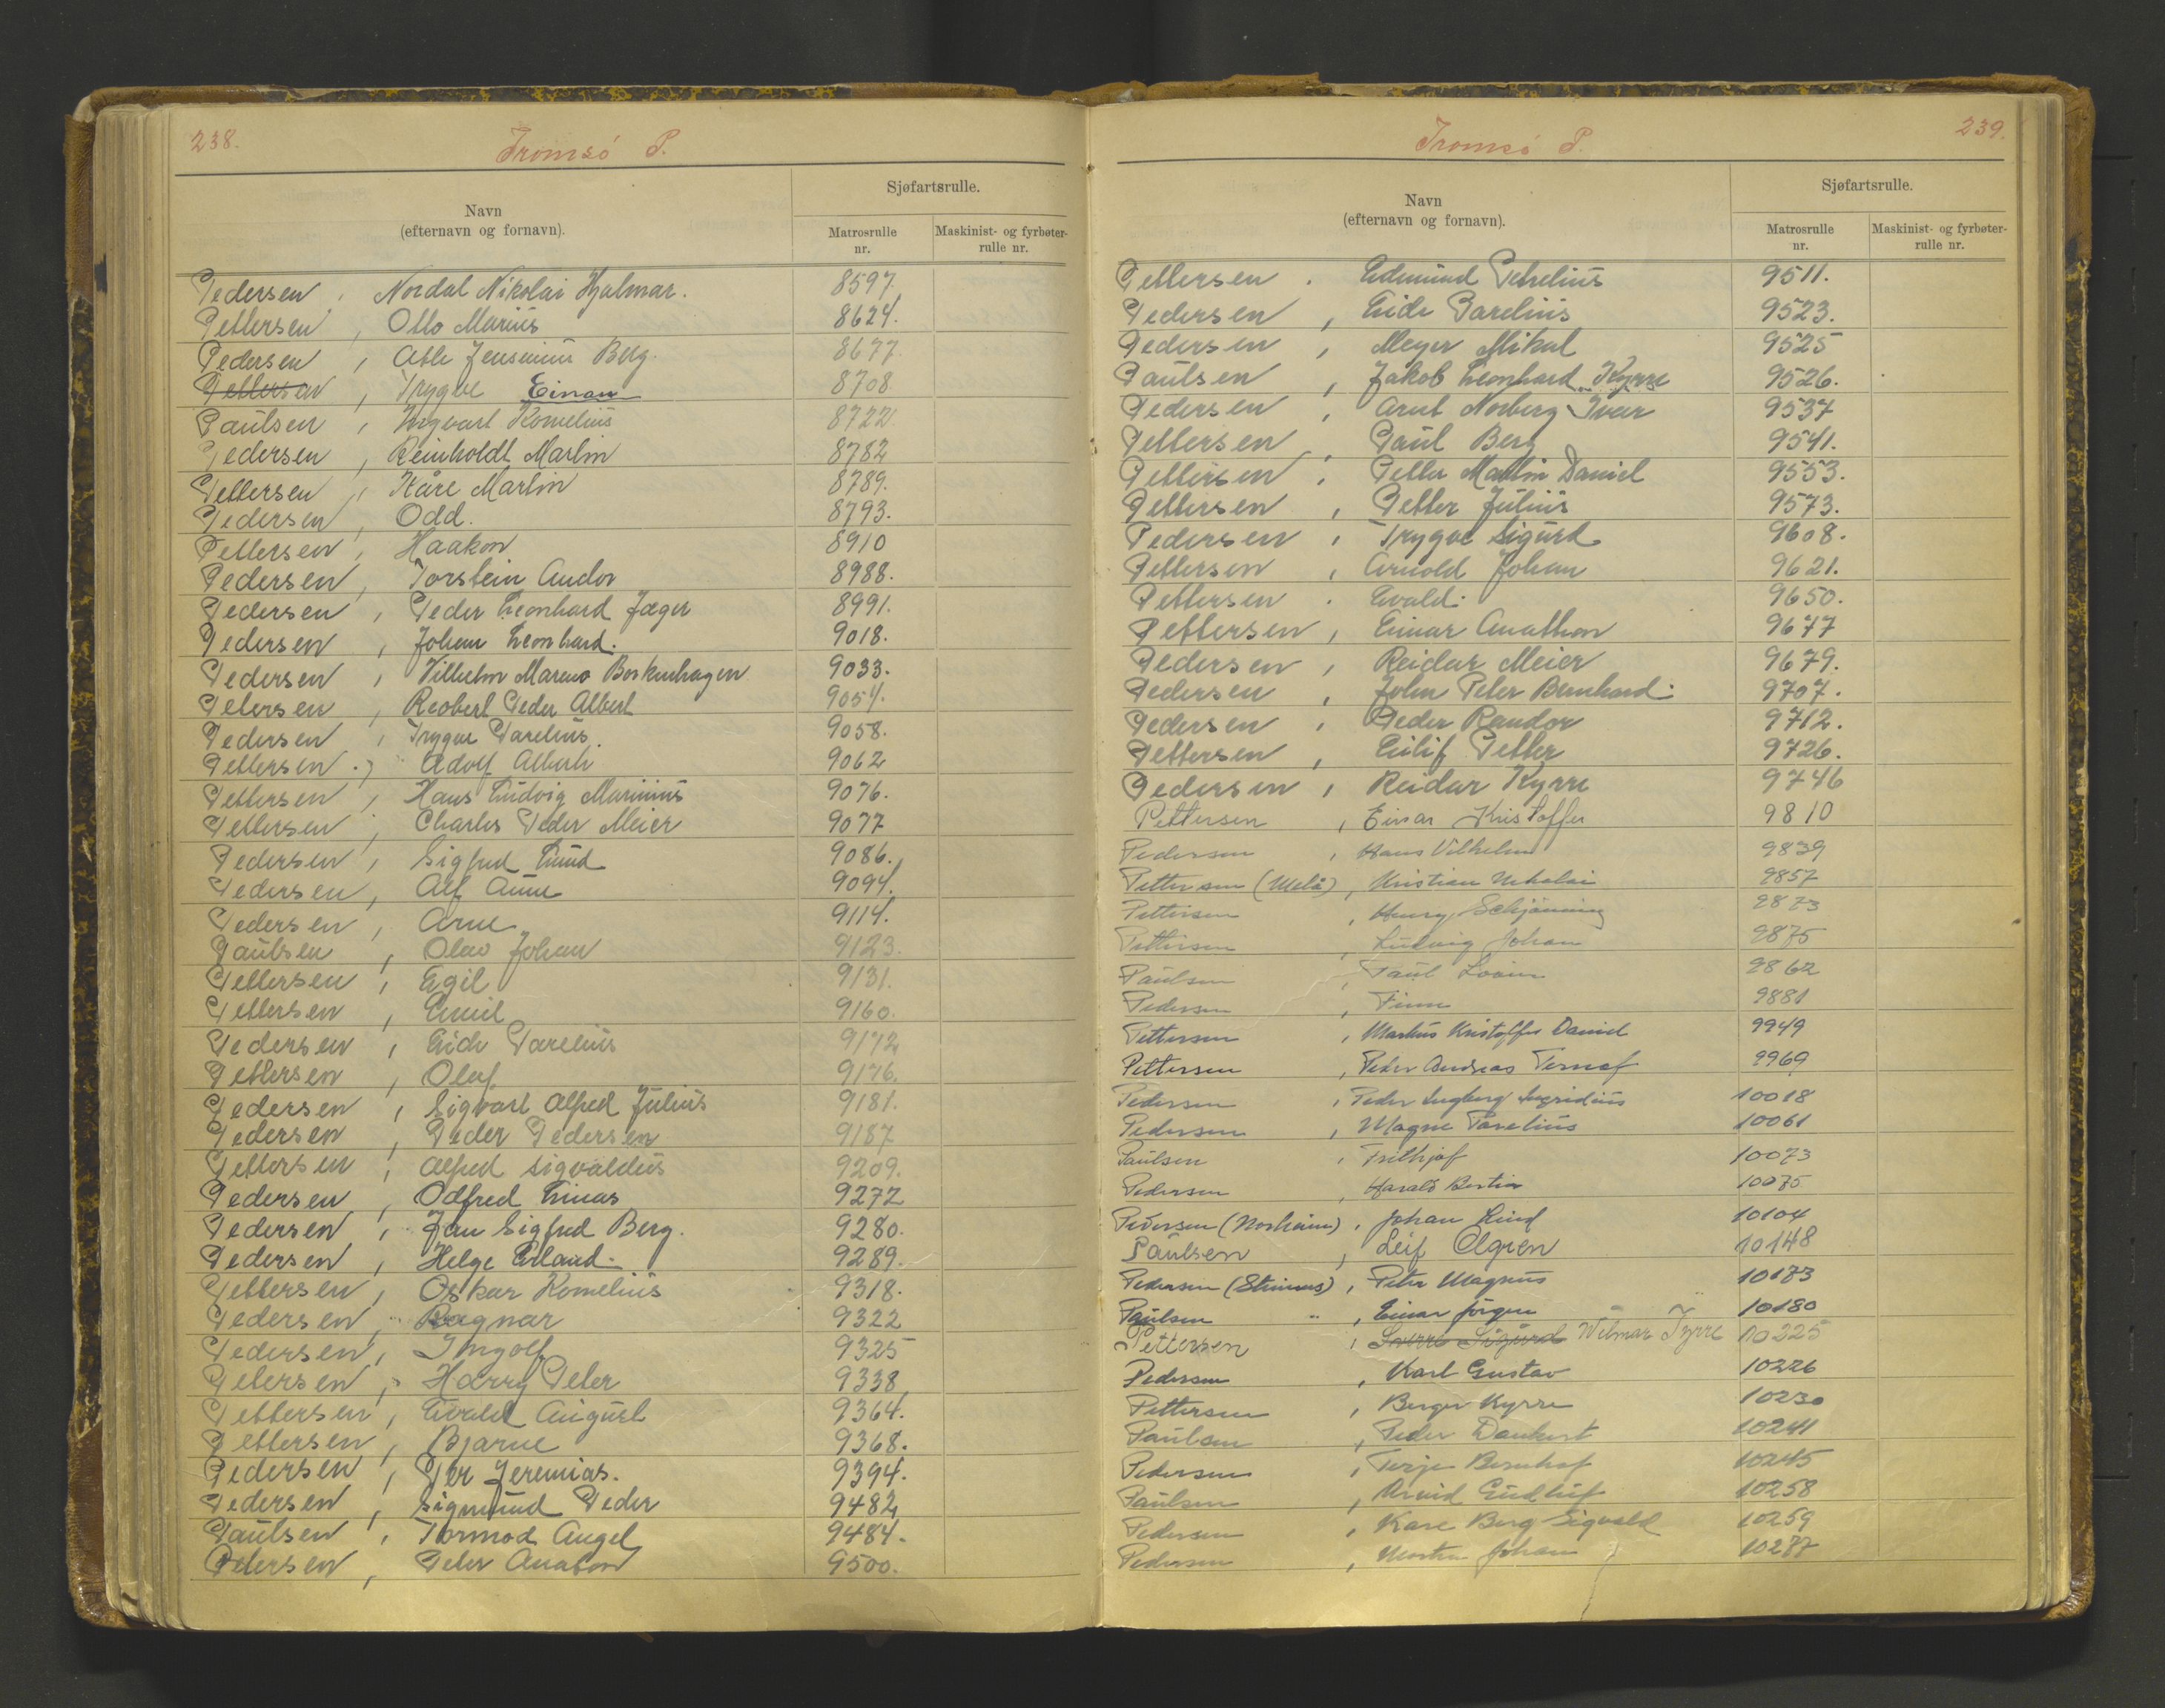 238.
Tromsø P.
Navn
(efternavn og fornavn).
Sjøfartsrulle.
Matrosrulle
nr.
Maskinist- og fyrbøter-
rulle nr.
Pedersen, Nordal Nikolai Hjalmar. 8597.
Pettersen, Otto Marius 8624.
Pedersen, Atle Jensenius Berg. 8677
Pettersen, Trygve Einar 8708
Paulsen, Ingvart Kornelius 8722.
Pedersen, Reinholdt Martin 8782
Pettersen, Kåre Martin 8789.
Pedersen, Odd. 8793.
Pettersen, Haakon 8910
Pedersen, Torstein Andor 8988.
Pedersen, Peder Leonhard Jæger 8991.
Pedersen, Johan Leonhard. 9018.
Pedersen, Vilhelm Mareno Borkenhagen 9033.
Petersen, Reobert Peder Albert 9054.
Pedersen, Trygve Parelius 9058.
Pettersen, Adolf Alberth 9062
Pettersen, Hans Ludvig Marinius 9076.
Pettersen, Charles Peder Meier 9077
Pedersen, Sigfred Lund 9086.
Pedersen, Alf Aune 9094.
Pedersen, Arne 9114.
Paulsen, Olav Johan 9123.
Pettersen, Egil 9131.
Pettersen, Emil 9160.
Pedersen, Eide Parelius 9172
Pettersen, Olaf 9176.
Pedersen, Sigvart Alfred Julius 9181.
Pedersen, Peder Pedersen 9187
Pettersen, Alfred Sigvaldus 9209.
Pedersen, Odfred Linas 9272
Pedersen, Jan Sigfred Berg. 9280.
Pedersen, Helge Erland. 9289.
Pettersen, Oskar Kornelius 9318.
Pedersen, Ragnar 9322
Pedersen, Ingolf 9325
Petersen, Harry Peter 9338
Pettersen, Evald August 9364.
Pettersen, Bjarne 9368.
Pedersen, Per Jeremias. 9394.
Pedersen, Sigmund Peder 9482
Paulsen, Tormod Angel 9484.
Petersen, Peter Anaton 9500.
239.
Tromsø P.
Navn
(efternavn og fornavn).
Sjøfartsrulle.
Matrosrulle
nr.
Maskinist- og fyrbøter-
rulle nr.
Pettersen, Edmund Petrelius 9511.
Pedersen, Eide Parelius 9523.
Pedersen, Meyer Mikal 9525
Paulsen, Jakob Leonhard Kyrre 9526.
Pedersen, Arnt Norberg Ivar 9537
Pettersen, Paul Berg 9541.
Pettersen, Petter Martin Daniel 9553.
Pettersen, Petter Julius 9573.
Pedersen, Trygve Sigurd 9608.
Pettersen, Arnold Johan 9621.
Pettersen, Evald. 9650.
Pettersen, Einar Anathon 9677
Pedersen, Reidar Meier 9679.
Pedersen, John Peter Bernhard. 9707.
Pedersen, Peder Randor 9712.
Pettersen, Eilif Petter 9726.
Pedersen, Reidar Kyrre 9746
Pettersen, Einar Kristoffer 9810
Pedersen, Hans Vilhelm 9839
Pettersen (Melå), Kristian Nikolai 9857
Pettersen, Henry Schjønning 9873
Pettersen, Ludvig Johan 9875
Paulsen, Paul 9862
Pedersen, Finn 9881
Pettersen, Markus Kristoffer Daniel 9949
Pettersen, Peder Andreas Fernaf 9969
Pedersen, Peder Ingberg Ingridius 10018
Pedersen, Magne Parelius 10061
Paulsen, Frithjof 10073
Pedersen, Harald Bertin 10075
Pedersen (Norheim), Johan Lind 10104
Paulsen, Leif Elgren 10148
Pedersen (Steinnes), Peter Magnus 10173
Paulsen, Einar Jørgen 10180
Pettersen, Sverre Sigurd Wilmar Tyrre 10225
Pedersen, Karl Gustav 10226
Pettersen, Berger Kyrre 10230
Paulsen, Peder Dankert 10241
Pedersen, Terje Bernhof 10245
Paulsen, Arvid Gudleif 10258
Pedersen, Kåre Berg Sigvald 10259
Pedersen, Morten Johan 10277